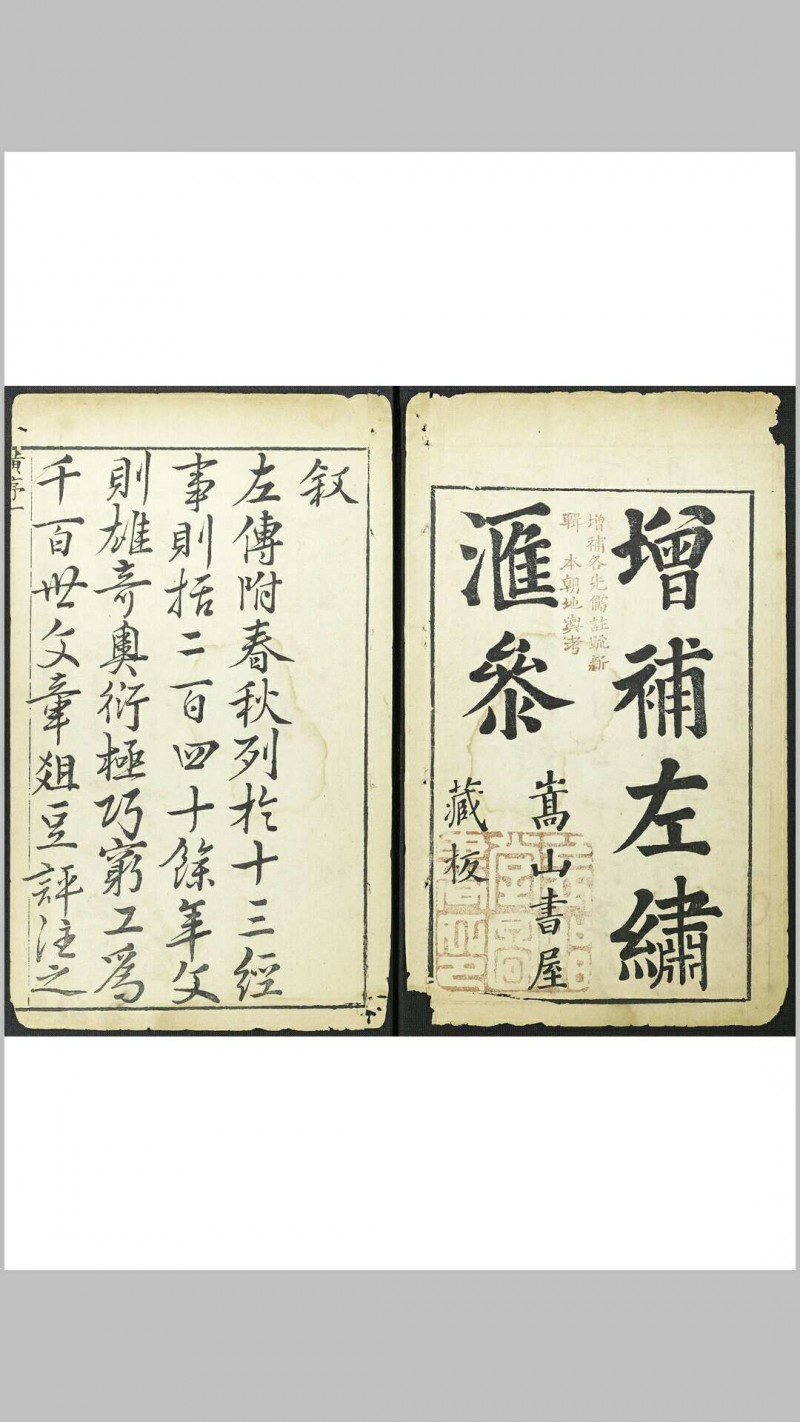 增補左繡
滙參
增補各先儒註疏新
輯 本朝地輿考
嵩山書屋
藏板
叙
左傳附春秋列於十三經
事則括二百四十餘年文
則雄奇奧衍極巧窮工爲
千百世文章俎豆評注之
黃序一